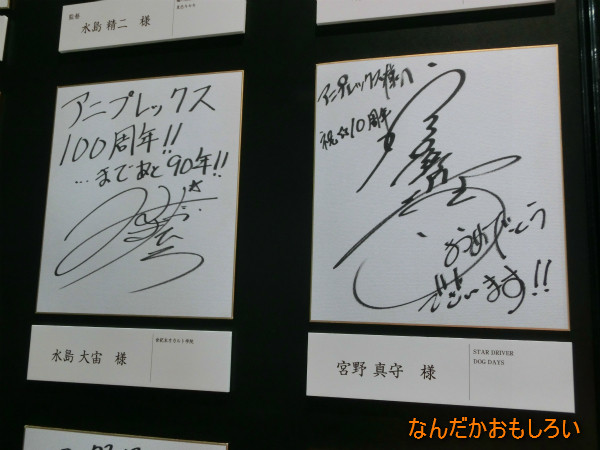 監督
水島 精二 様
アニプレックス
100周年!!
…まであと90年!!
水島 大宙 様
アニプレックス様へ
祝☆10周年
おめでとう
ございます!!
宮野 真守 様
STAR DRIVER
DOG DAYS
なんだかおもしろい